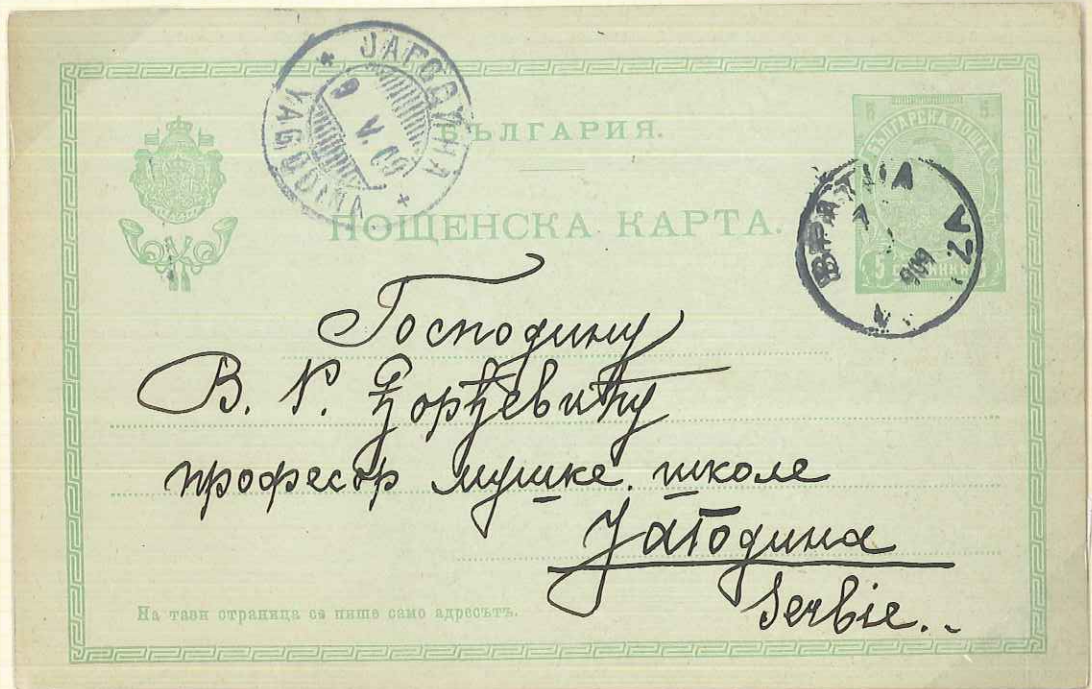 ЈАГОДИНА
9 V. 09
YAGODINA
БЪЛГАРИЯ.
ПОЩЕНСКА КАРТА.
5 5
БЪЛГАРСКА ПОЩА
5 СТОТИНКИ 5
ВРАТЦА
VZA
7
909
Господину
В. Р. Ђорђевићу
професор мушке школе
Јагодина
Serbie..
На тази страница се пише само адресътъ.